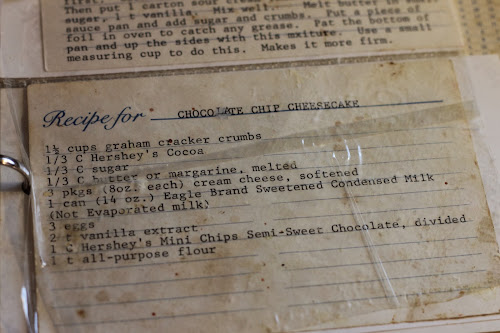 Then put 1 carton sour cream
sugar, 1 t vanilla. Mix well. Melt butter
sauce pan and add sugar and crumbs. Put a piece of
foil in oven to catch any grease. Pat the bottom of
pan and up the sides with this mxiture. Use a small
measuring cup to do this. Makes it more firm.
Recipe for CHOCOLATE CHIP CHEESECAKE
1½ cups graham cracker crumbs
1/3 C Hershey's Cocoa
1/3 C sugar
1/3 C butter or margarine, melted
3 pkgs (8oz. each) cream cheese, softened
1 can (14 oz.) Eagle Brand Sweetened Condensed Milk
(Not Evaporated milk)
3 eggs
2 t vanilla extract
1 C Hershey's Mini Chips Semi-Sweet Chocolate, divided
1 t all-purpose flour